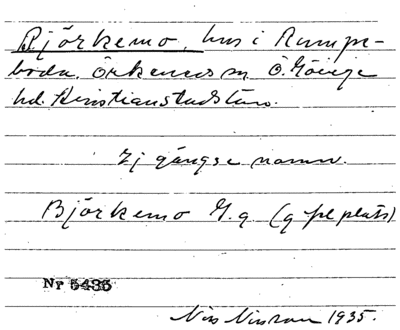 Björkemo, hus i Rumpe-
boda. Örkeneds sn Ö. Göinge
hd. Kristianstads län.
Ej gängse namn.
Björkemo G.g (g pl plats)
Nr 5435
Nils Nilsson 1935.